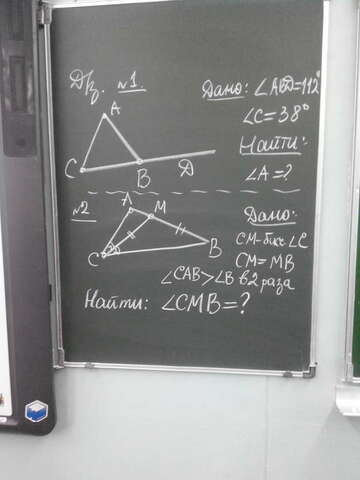 Дз. №1.
Дано: ∠ABD=112°
∠C=38°
Найти:
∠A=?
A
C
B
D
№2
Дано:
CM-бисс ∠C
CM=MB
∠CAB>∠B в 2 раза
A
M
C
B
Найти: ∠CMB=?